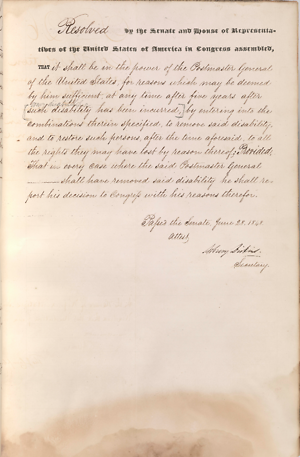 Resolved by the Senate and House of Representa-
tives of the United States of America in Congress assembled,
THAT it shall be in the power of the Postmaster General
of the United States, for reasons which may be deemed
by him sufficient, at any time after five years after
such disability has been incurred, by entering into the
combinations therein specified, to remove said disability,
and to restore such persons, after the time aforesaid, to all
the rights they may have lost by reason thereof; Provided,
That in every case where the said Postmaster General
shall have removed said disability he shall re-
port his decision to Congress with his reasons therefor.
Passed the Senate, June 28. 
Attest,
Asbury Dickins.
Secretary.